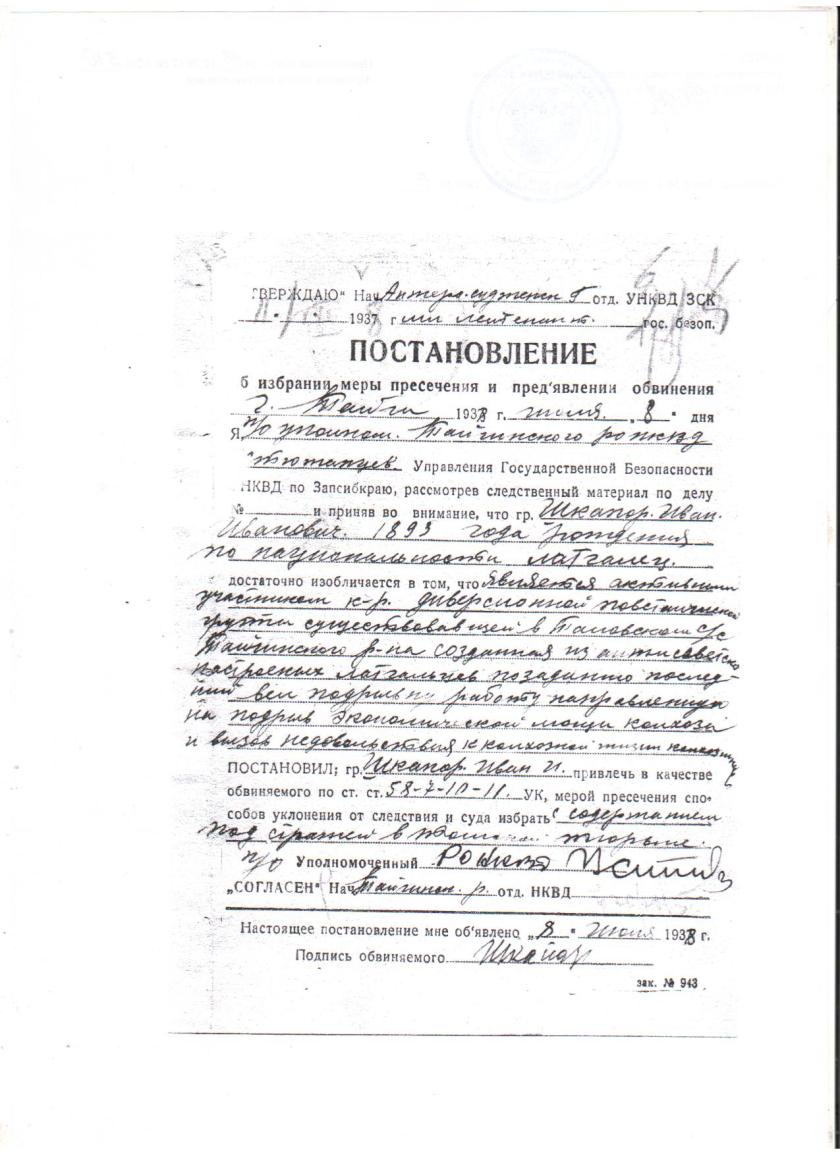 ТВЕРЖДАЮ" Нач. Анжеро-судженск Г отд. УНКВД ЗСК
1937 г мл лейтенант. гос. безоп.
ПОСТАНОВЛЕНИЕ
б избрании меры пресечения и пред'явлении обвинения
г. Тайга 1938 г. июля „8" дня
Я п/о уполном. Тайгинского рожквд
Тютанцев. Управления Государственной Безопасности
НКВД по Запсибкраю, рассмотрев следственный материал по делу
№ и приняв во внимание, что гр. Шкапор. Иван.
Иванович. 1893 года рождения
по национальности латгалец.
достаточно изобличается в том, что является активным
участником к-р. диверсионной повстанческой
группы существовавшей в Тановском с/с
Тайгинского р-на созданная из антисоветско
настроеных латгальцев по заданию послед-
ний вел подрывную работу направленную
на подрыв экономической мощи колхоза
и вызов недовольствия к колхозной жизни
ПОСТАНОВИЛ; гр. Шкапор Иван И. привлечь в качестве
обвиняемого по ст. ст. 58-7-10-11. УК, мерой пресечения спо-
собов уклонения от следствия и суда избрать содержанием
под стражей в тюрьме.
п/о Уполномоченный
„СОГЛАСЕН" Нач. Тайгинск. р. отд. НКВД
Настоящее постановление мне об'явлено „8" июля 1938 г.
Подпись обвиняемого Шкапор
зак. № 943